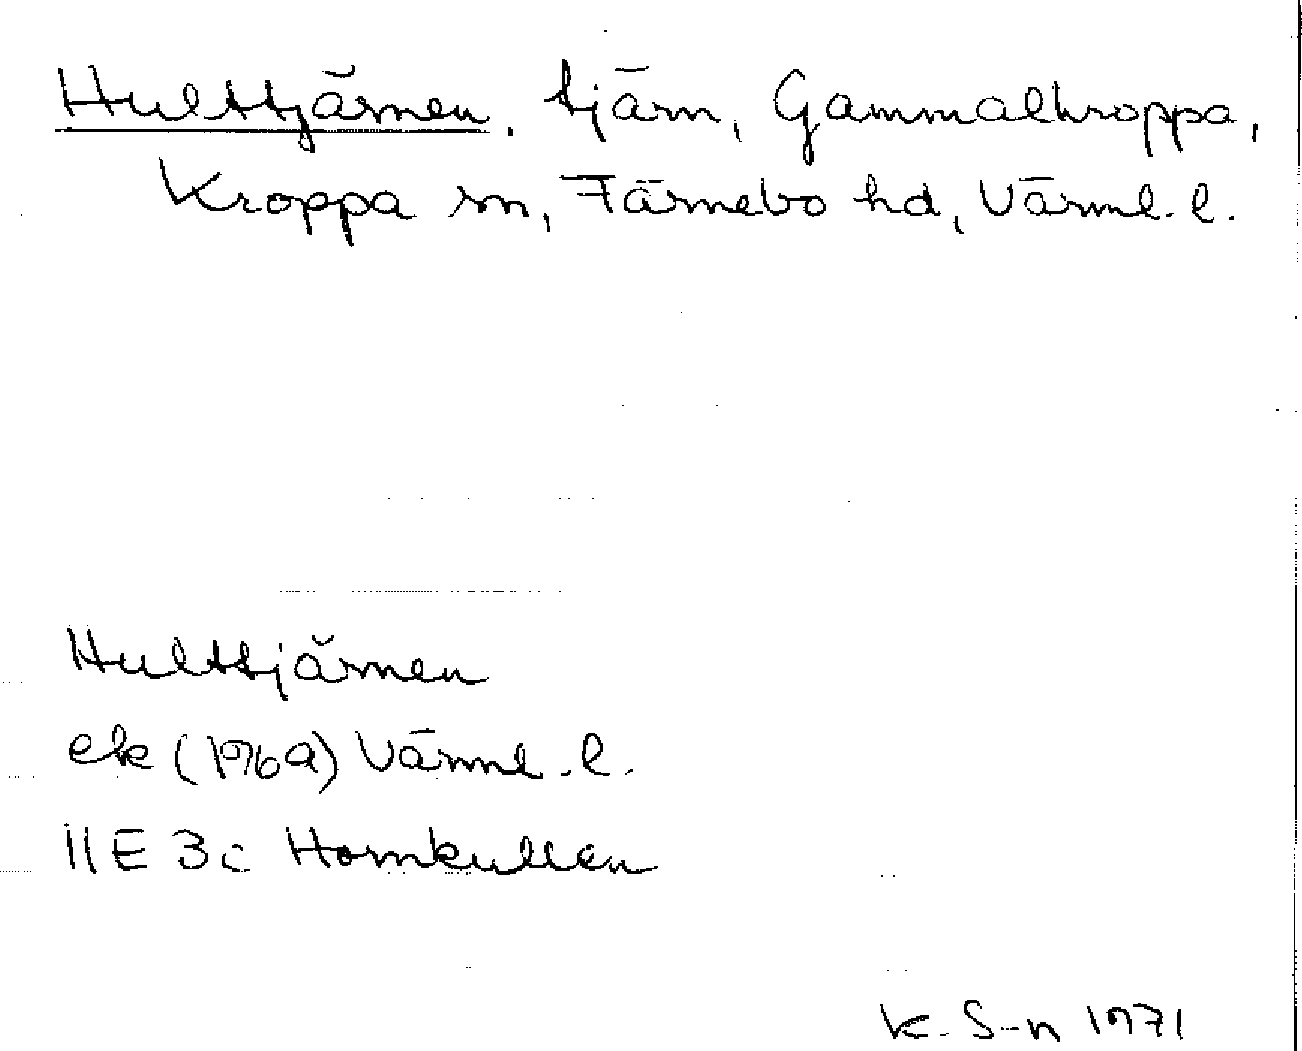 Hulttjärnen, tjärn, Gammalkroppa,
Kroppa sn, Färnebo hd, Värml. l.
Hulttjärnen
ek (1969) Värml. l.
11E 3c Hornkullen
K. S-n 1971